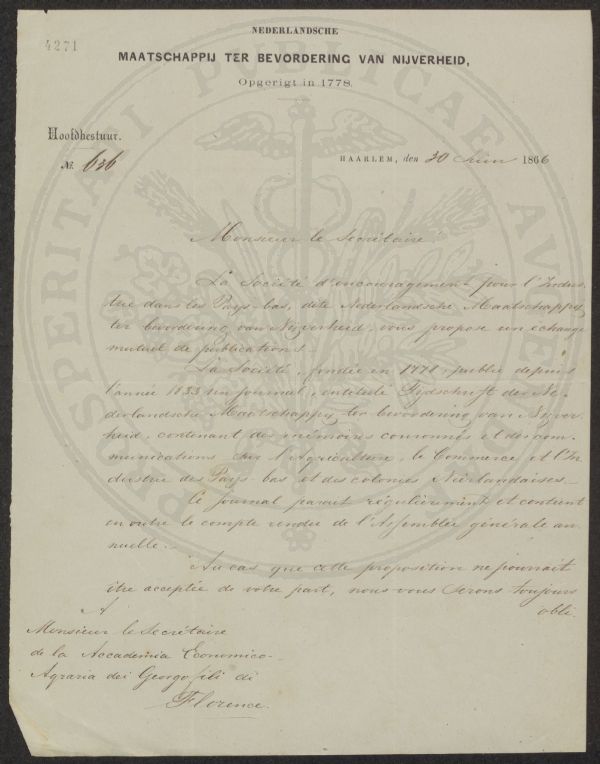 4271
NEDERLANDSCHE
MAATSCHAPPIJ TER BEVORDERING VAN NIJVERHEID,
Opgerigt in 1778.
Hoofdbestuur.
No. 636
HAARLEM, den 30 Juin 1866
Monsieur le Secrétaire
La Société d'encouragement pour l'Indus
trie dans les Pays-bas, dite Nederlandsche Maatschappij
ter bevordering van Nijverheid, vous propose un échange
mutuel de publications.
La Société, fondée en 1778, publie depuis
l'année 1833 un journal, intitulé Tijdschrift der Ne-
derlandsche Maatschappij ter bevordering van Nijver
heid, contenant des mémoires couronnés et des com
munications sur l'Agriculture, le Commerce et l'In
dustrie des Pays-bas et des colonies Néerlandaises.
Ce journal parait régulièrement et contient
en outre le compte rendu de l'Assemblée générale an
nuelle.
Au cas que cette proposition ne pourrait
être acceptée de votre part, nous vous serons toujours
obli
A
Monsieur le Secrétaire
de la Accademia Economico-
Agraria dei Georgofili di
Florence.
PROSPERITATI PUBLICAE AUGENDAE